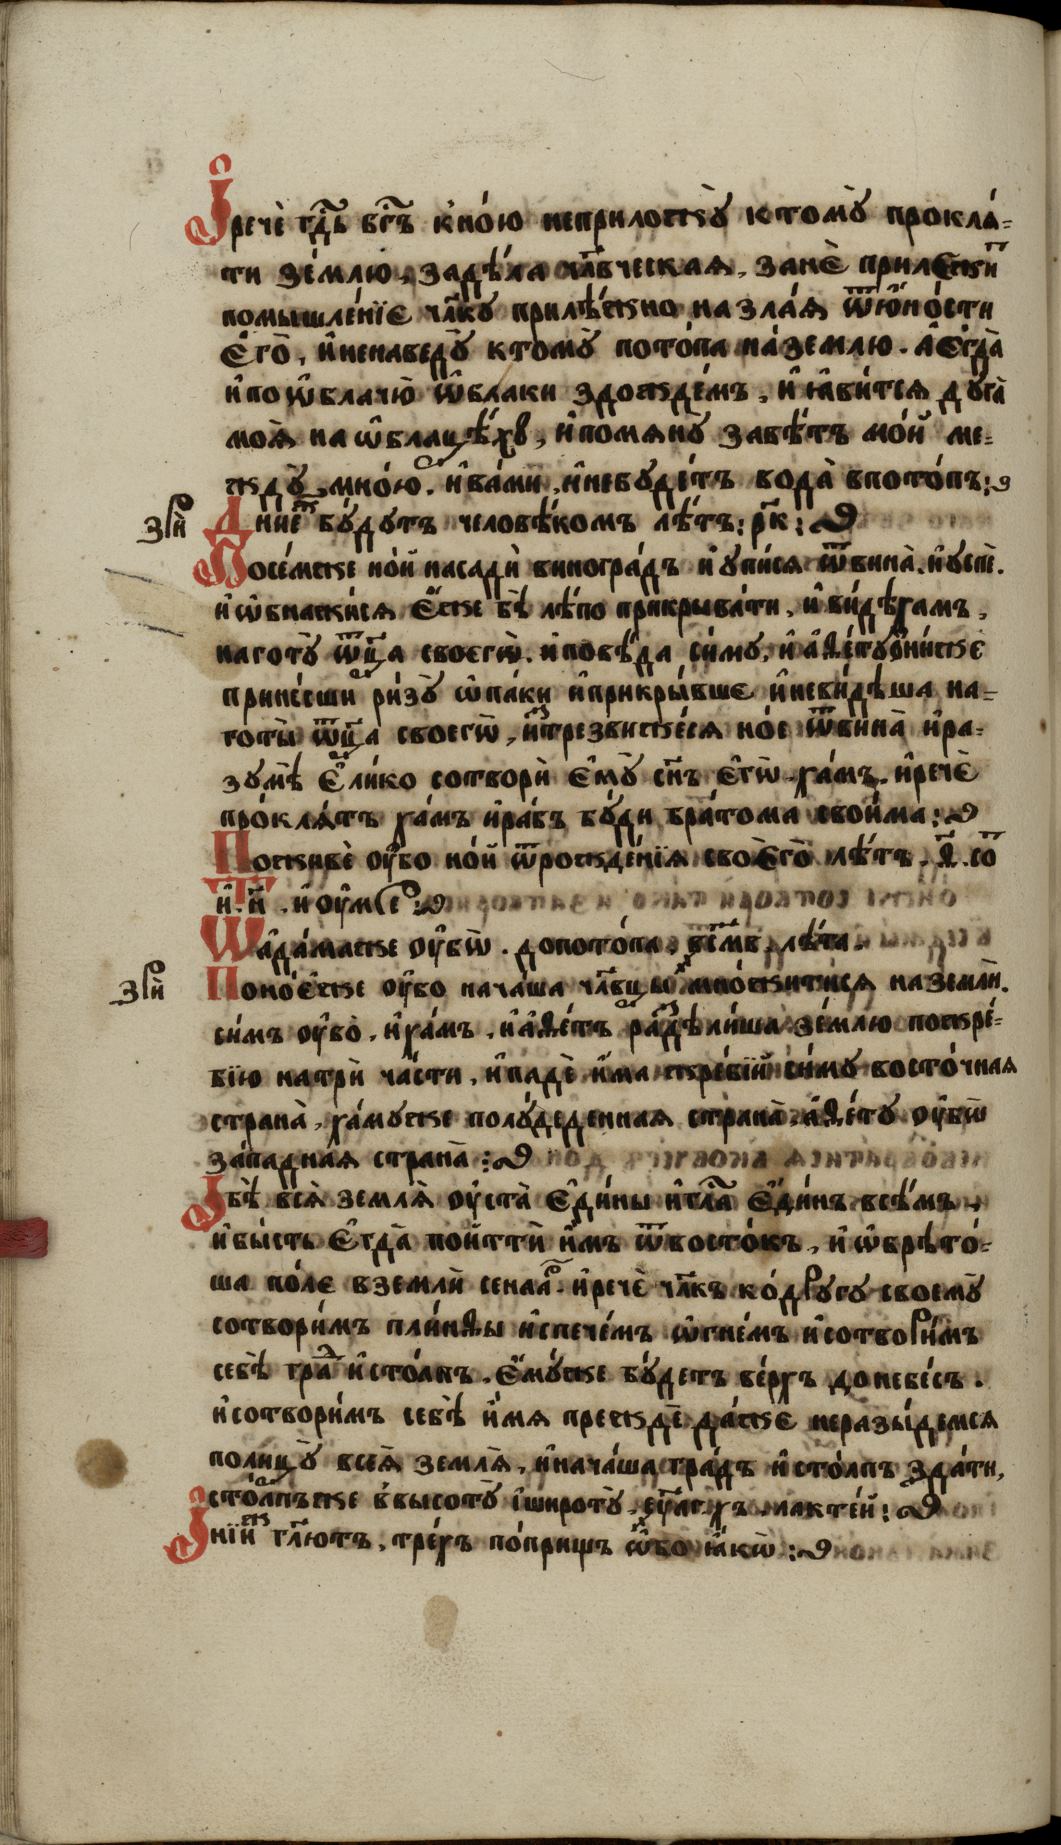 І҆речѐ гдⷭ҇ь бг҃ъ к̾но́ю неприложꙋ̀ ктомꙋ̀ проклѧ́-
ти зе́млю, задѣ́ла чл҃вческаѧ, занѐ прилежиⷮ
помышле́нїе чл҃кꙋ прилѣ́жно назла́ѧ ѿю҆́ности
є҆гѡ̀, и҆ненаведꙋ̀ ктомꙋ̀ пото́па на́землю. а҆є҆гда̀
и҆поѡ҆блачю̀ ѡ҆́блаки здожде́мъ, и҆ꙗ҆ви́тсѧ дꙋга̀
моѧ̀ на ѡ҆́блацѣ́хъ, и҆помѧнꙋ̀ завѣ́тъ мо́й ме-
ждꙋ̀ мно́ю. и҆ва́ми, и҆небꙋде́тъ вода̀ впото́пъ:
зрѝ
Дниⷤе бꙋ́дꙋтъ человѣ́комъ лѣ́тъ: рк҃:
Посе́мже но́й насадѝ виногра́дъ и҆ ᲂупи́сѧ ѿвина̀. и҆ᲂуспѐ.
и҆ѡ҆бнажи́сѧ є҆́же бѣ̀ лѣ́по прикрыва́ти, и҆ви́дѣ ха́мъ,
наготꙋ̀ ѿц҃а своегѡ̀. и҆повѣ́да си́мꙋ, и҆ а҆фе́тꙋ ѻ҆ни́же
прине́сши ри́зꙋ ѡ҆па́ки и҆прикры́вше и҆неви́дѣша на-
готы̀ ѿц҃а своегѡ̀, и҆стрезви́же́сѧ но́е ѿвина̀ и҆ра-
зꙋмѣ̀ є҆ли́ко сотворѝ є҆мꙋ̀ сн҃ъ є҆гѡ̀ ха́мъ. и҆речѐ
про́клѧтъ ха́мъ и҆ра́бъ бꙋ́ди бра́тома свои́ма:
Поживѐ ᲂу҆̀бо но́й ѿрожде́нїѧ своегѡ̀ лѣ́тъ. ц҃. соⷮ
и҆. н҃. и҆ ᲂу҆́мре:
Ѿа҆да́маже ᲂу҆̀бѡ. допото́па, вс҃мв. лѣ́та.
зрѝ
Поно́еже ᲂу҆̀бо нача́ша чл҃вцы мно́житисѧ наземлѝ.
си́мъ ᲂу҆̀бо, и҆ха́мъ, и҆а҆фе́тъ раздѣли́ша зе́млю пожре́-
бїю натрѝ ча́сти, и҆падѐ и҆́ма жре́бїй си́мꙋ восто́чнаѧ
страна̀, ха́мꙋже полꙋ́деденнаѧ страна̀, а҆фе́тꙋ ᲂу҆̀бѡ
за́паднаѧ страна̀:
І҆бѣ̀ всѧ̀ землѧ̀ ᲂу҆ста̀ є҆ди́ны и҆гла҃ є҆ди́нъ всѣ́мъ,
и҆бы́сть є҆гда̀ поиттѝ и҆̀мъ ѿвосто́къ, и҆ ѡ҆брѣто́-
ша по́ле вземлѝ сенаа́ⷬ. и҆речѐ чл҃къ ко́дрꙋгꙋ своемꙋ̀
сотвори́мъ пли́нфы и҆спече́мъ ѡ҆гне́мъ и҆сотвори́мъ
себѣ̀ граⷣ и҆сто́лпъ, є҆мꙋ́же бꙋ́детъ ве́рхъ донебе́съ.
и҆сотвори́мъ себѣ̀ и҆́мѧ пре́жде да́же неразы́демсѧ
полицꙋ̀ всеѧ̀ землѧ̀, и҆нача́ша гра́дъ и҆сто́лпъ зда́ти,
сто́лпъже ввысотꙋ̀ і҆широтꙋ̀, лакте́й:
І҆нїиⷤ гл҃ютъ, тре́хъ по́прищъ ѡ҆́бо ꙗ҆́кѡ: